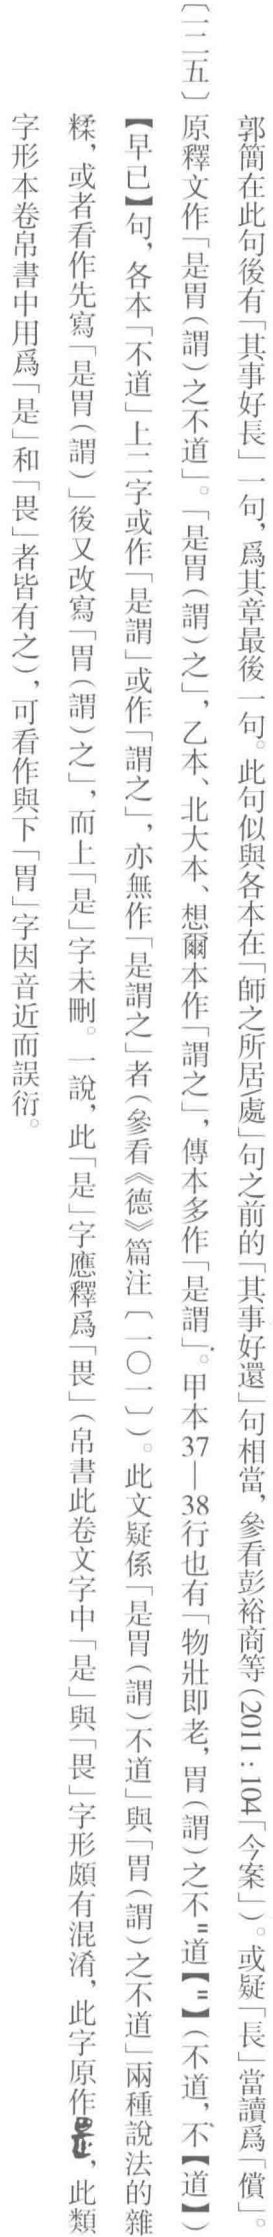 郭簡在此句後有「其事好長」一句，爲其章最後一句。此句似與各本在「師之所居/處」句之前的「其事好還」句相當，參看彭裕商等（2011：104「今案」）。或疑「長」當讀爲「償」。
〔一二五〕原釋文作「是胃（謂）之不道」。「是胃（謂）之」，乙本、北大本、想爾本作「謂之」，傳本多作「是謂」。甲本37—38行也有「物壯即老，胃（謂）之不＝道【＝】（不道，不【道】）
【早已】句，各本「不道」上二字或作「是謂」或作「謂之」，亦無作「是謂之」者（參看《德》篇注〔一〇一〕）。此文疑係「是胃（謂）不道」與「胃（謂）之不道」兩種說法的雜
糅，或者看作先寫「是胃（謂）」後又改寫「胃（謂）之」，而上「是」字未刪。一說，此「是」字應釋爲「畏」（帛書此卷文字中「是」與「畏」字形頗有混淆，此字原作，此類
字形本卷帛書中用爲「是」和「畏」者皆有之），可看作與下「胃」字因音近而誤衍。